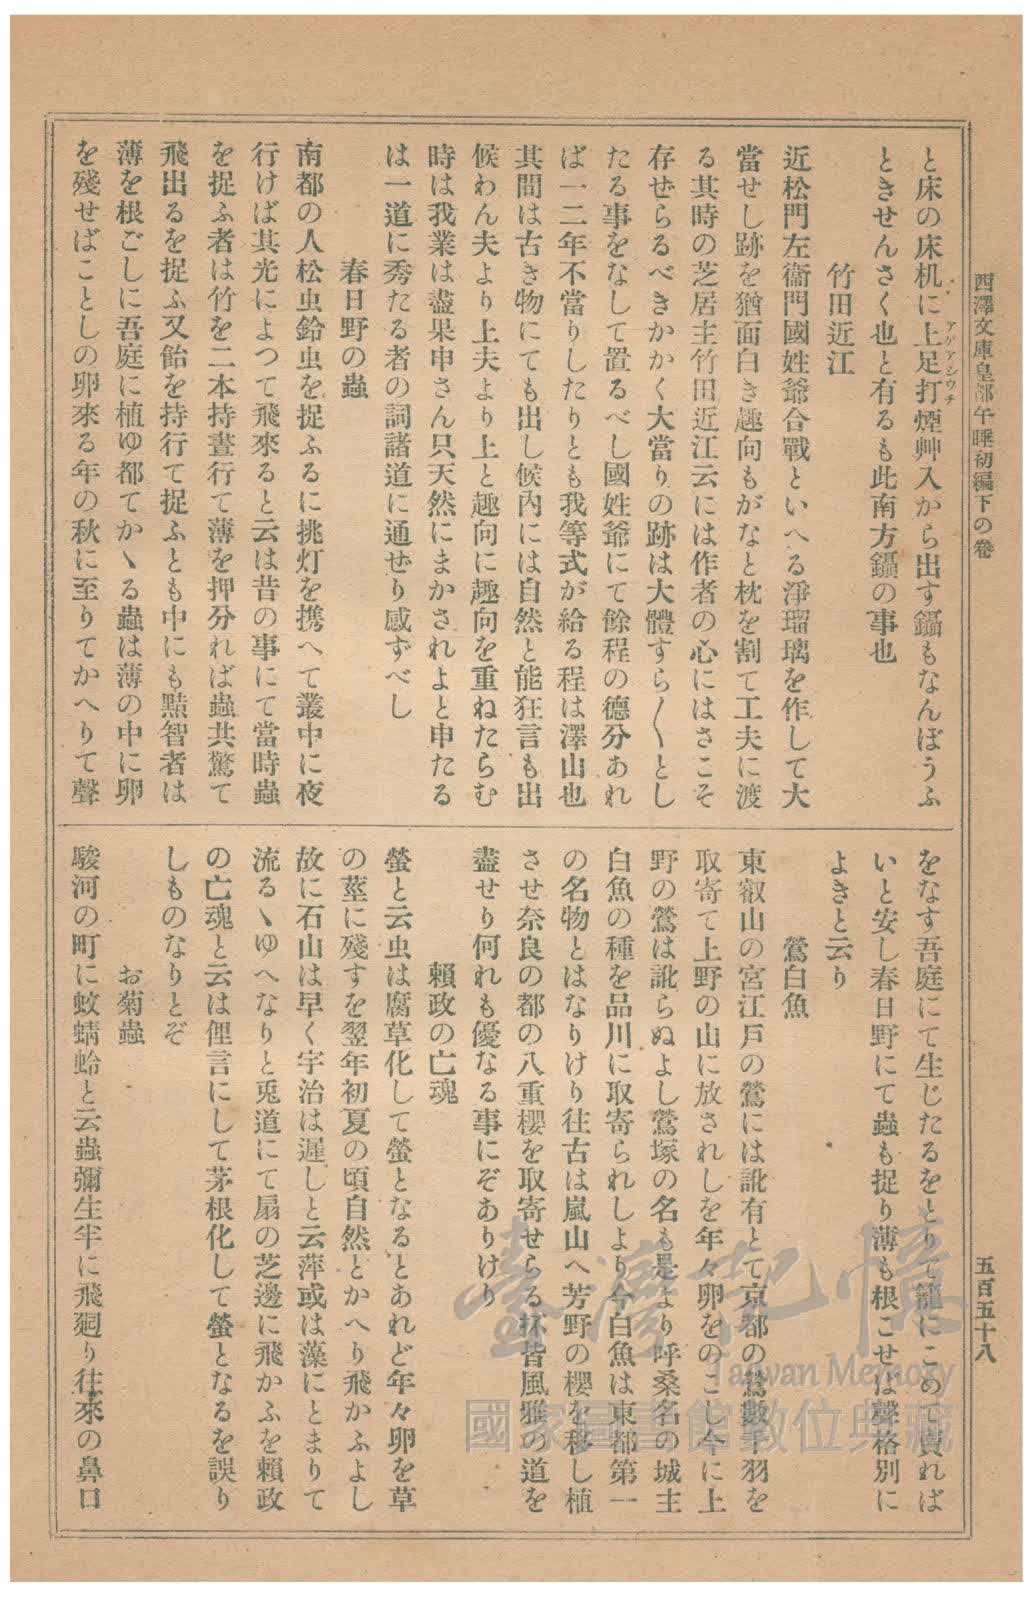 西澤文庫皇都午睡初編下の卷
五百五十八
と床の床机に上足打煙艸入から出す鑷もなんぼうふ
アゲアシウチ
ときせんさく也と有るも此南方鑷の事也
竹田近江
近松門左衞門國姓爺合戰といへる淨瑠璃を作して大
當せし跡を猶面白き趣向もがなと枕を割て工夫に渡
る其時の芝居主竹田近江云には作者の心にはさこそ
存ぜらるべきかかく大當りの跡は大體すら〱とし
たる事をなして置るべし國姓爺にて餘程の德分あれ
ば一二年不當りしたりとも我等式が給る程は澤山也
其間は古き物にても出し候內には自然と能狂言も出
候わん夫より上夫より上と趣向に趣向を重ねたらむ
時は我業は盡果申さん只天然にまかされよと申たる
は一道に秀たる者の詞諸道に通ぜり感ずべし
春日野の蟲
南都の人松虫鈴虫を捉ふるに挑灯を携へて叢中に夜
行けば其光によつて飛來ると云は昔の事にて當時蟲
を捉ふ者は竹を二本持晝行て薄を押分れば蟲共驚て
飛出るを捉ふ又飴を持行て捉ふとも中にも黠智者は
薄を根ごしに吾庭に植ゆ都てかゝる蟲は薄の中に卵
を殘せばことしの卵來る年の秋に至りてかへりて聲
をなす吾庭にて生じたるをとりて籠にこめて賣れば
いと安し春日野にて蟲も捉り薄も根こせば聲格別に
よきと云り
鶯白魚
東叡山の宮江戶の鶯には訛有とて京都の鶯數千羽を
取寄て上野の山に放されしを年々卵をのこし今に上
野の鶯は訛らぬよし鶯塚の名も是より呼桑名の城主
白魚の種を品川に取寄られしより今白魚は東都第一
の名物とはなりけり往古は嵐山へ芳野の櫻を移し植
させ奈良の都の八重櫻を取寄せらる杯皆風雅の道を
盡せり何れも優なる事にぞありけり
賴政の亡魂
螢と云虫は腐草化して螢となるとあれど年々卵を草
の莖に殘すを翌年初夏の頃自然とかへり飛かふよし
故に石山は早く宇治は遲しと云萍或は藻にとまりて
流るゝゆへなりと兎道にて扇の芝邊に飛かふを賴政
の亡魂と云は俚言にして茅根化して螢となるを誤り
しものなりとぞ
お菊蟲
駿河の町に蚊蜻蛉と云蟲彌生半に飛廻り往來の鼻口
臺灣記憶
Taiwan Memory
國家圖書館數位典藏